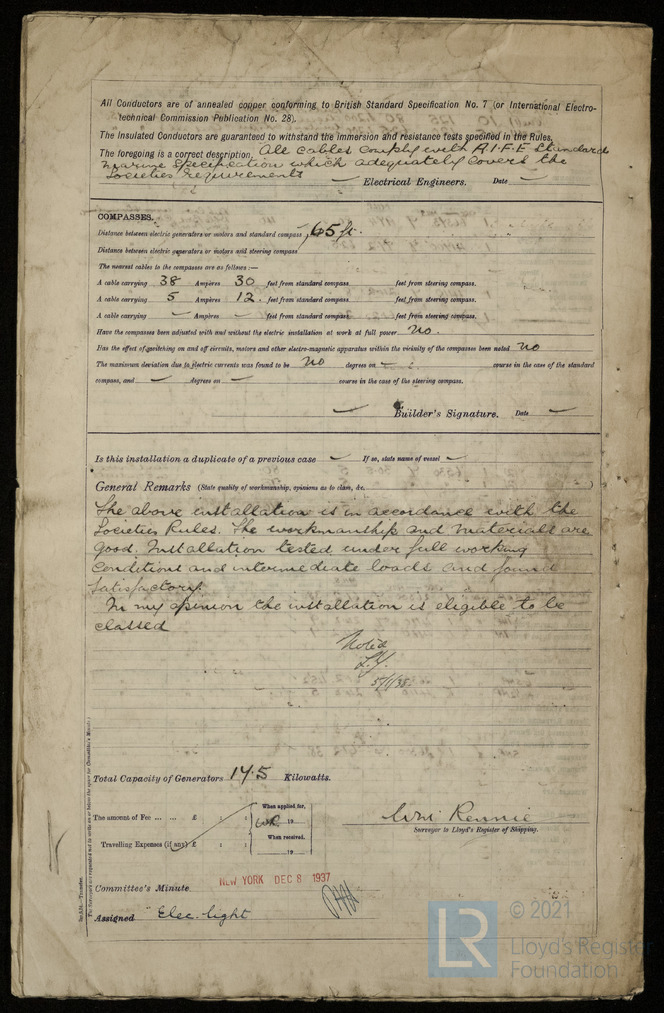 All Conductors are of annealed copper conforming to British Standard Specification No. 7 (or International Electro-
technical Commission Publication No. 28).
The Insulated Conductors are guaranteed to withstand the immersion and resistance tests specified in the Rules.
The foregoing is a correct description. All cables comply with A.I.E.E Standard
Marine Specification which adequately covers the
Societies requirements — Electrical Engineers. Date —
COMPASSES.
Distance between electric generators or motors and standard compass 65 ft.
Distance between electric generators or motors and steering compass
The nearest cables to the compasses are as follows:—
A cable carrying 38 Ampères 30 feet from standard compass feet from steering compass.
A cable carrying 5 Ampères 12. feet from standard compass feet from steering compass.
A cable carrying — Ampères — feet from standard compass feet from steering compass.
Have the compasses been adjusted with and without the electric installation at work at full power No.
Has the effect of switching on and off circuits, motors and other electro-magnetic apparatus within the vicinity of the compasses been noted No
The maximum deviation due to electric currents was found to be No degrees on — course in the case of the standard
compass, and — degrees on — course in the case of the steering compass.
— Builder's Signature. Date —
Is this installation a duplicate of a previous case — If so, state name of vessel —
General Remarks (State quality of workmanship, opinions as to class, &c.
The above installation is in accordance with the
Societies Rules. The workmanship and materials are
good. Installation tested under full working
conditions and intermediate loads and found
satisfactory.
In my opinion the installation is eligible to be
classed
Noted
5/1/38
Total Capacity of Generators 14.5 Kilowatts.
The amount of Fee ... ... £ : :
When applied for,
19
Travelling Expenses (if any) £ : :
When received,
19
Wm Rennie
Surveyor to Lloyd's Register of Shipping.
Committee's Minute NEW YORK DEC 8 1937
Assigned Elec. light
© 2021
Lloyd's Register
Foundation
LR